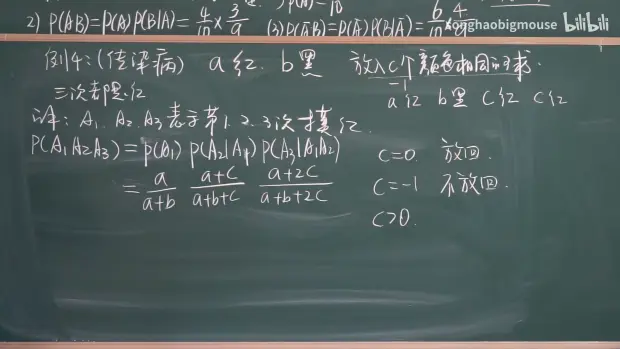 2) P(AB)=P(A)P(B|A)=4/10×3/9 (3)P(ĀB)=P(Ā)P(B|Ā)=6/10×4/9
songhaobigmouse bilibili
例4:(传染病) a红. b黑 放入c个颜色相同的球.
三次都是红
-1
a红 b黑 c红 c红
解: A₁. A₂. A₃表示第1.2.3次摸红.
P(A₁A₂A₃)=P(A₁)P(A₂|A₁)P(A₃|A₁A₂)
c=0. 放回.
=a/(a+b) (a+c)/(a+b+c) (a+2c)/(a+b+2c)
c=-1 不放回.
c>0.